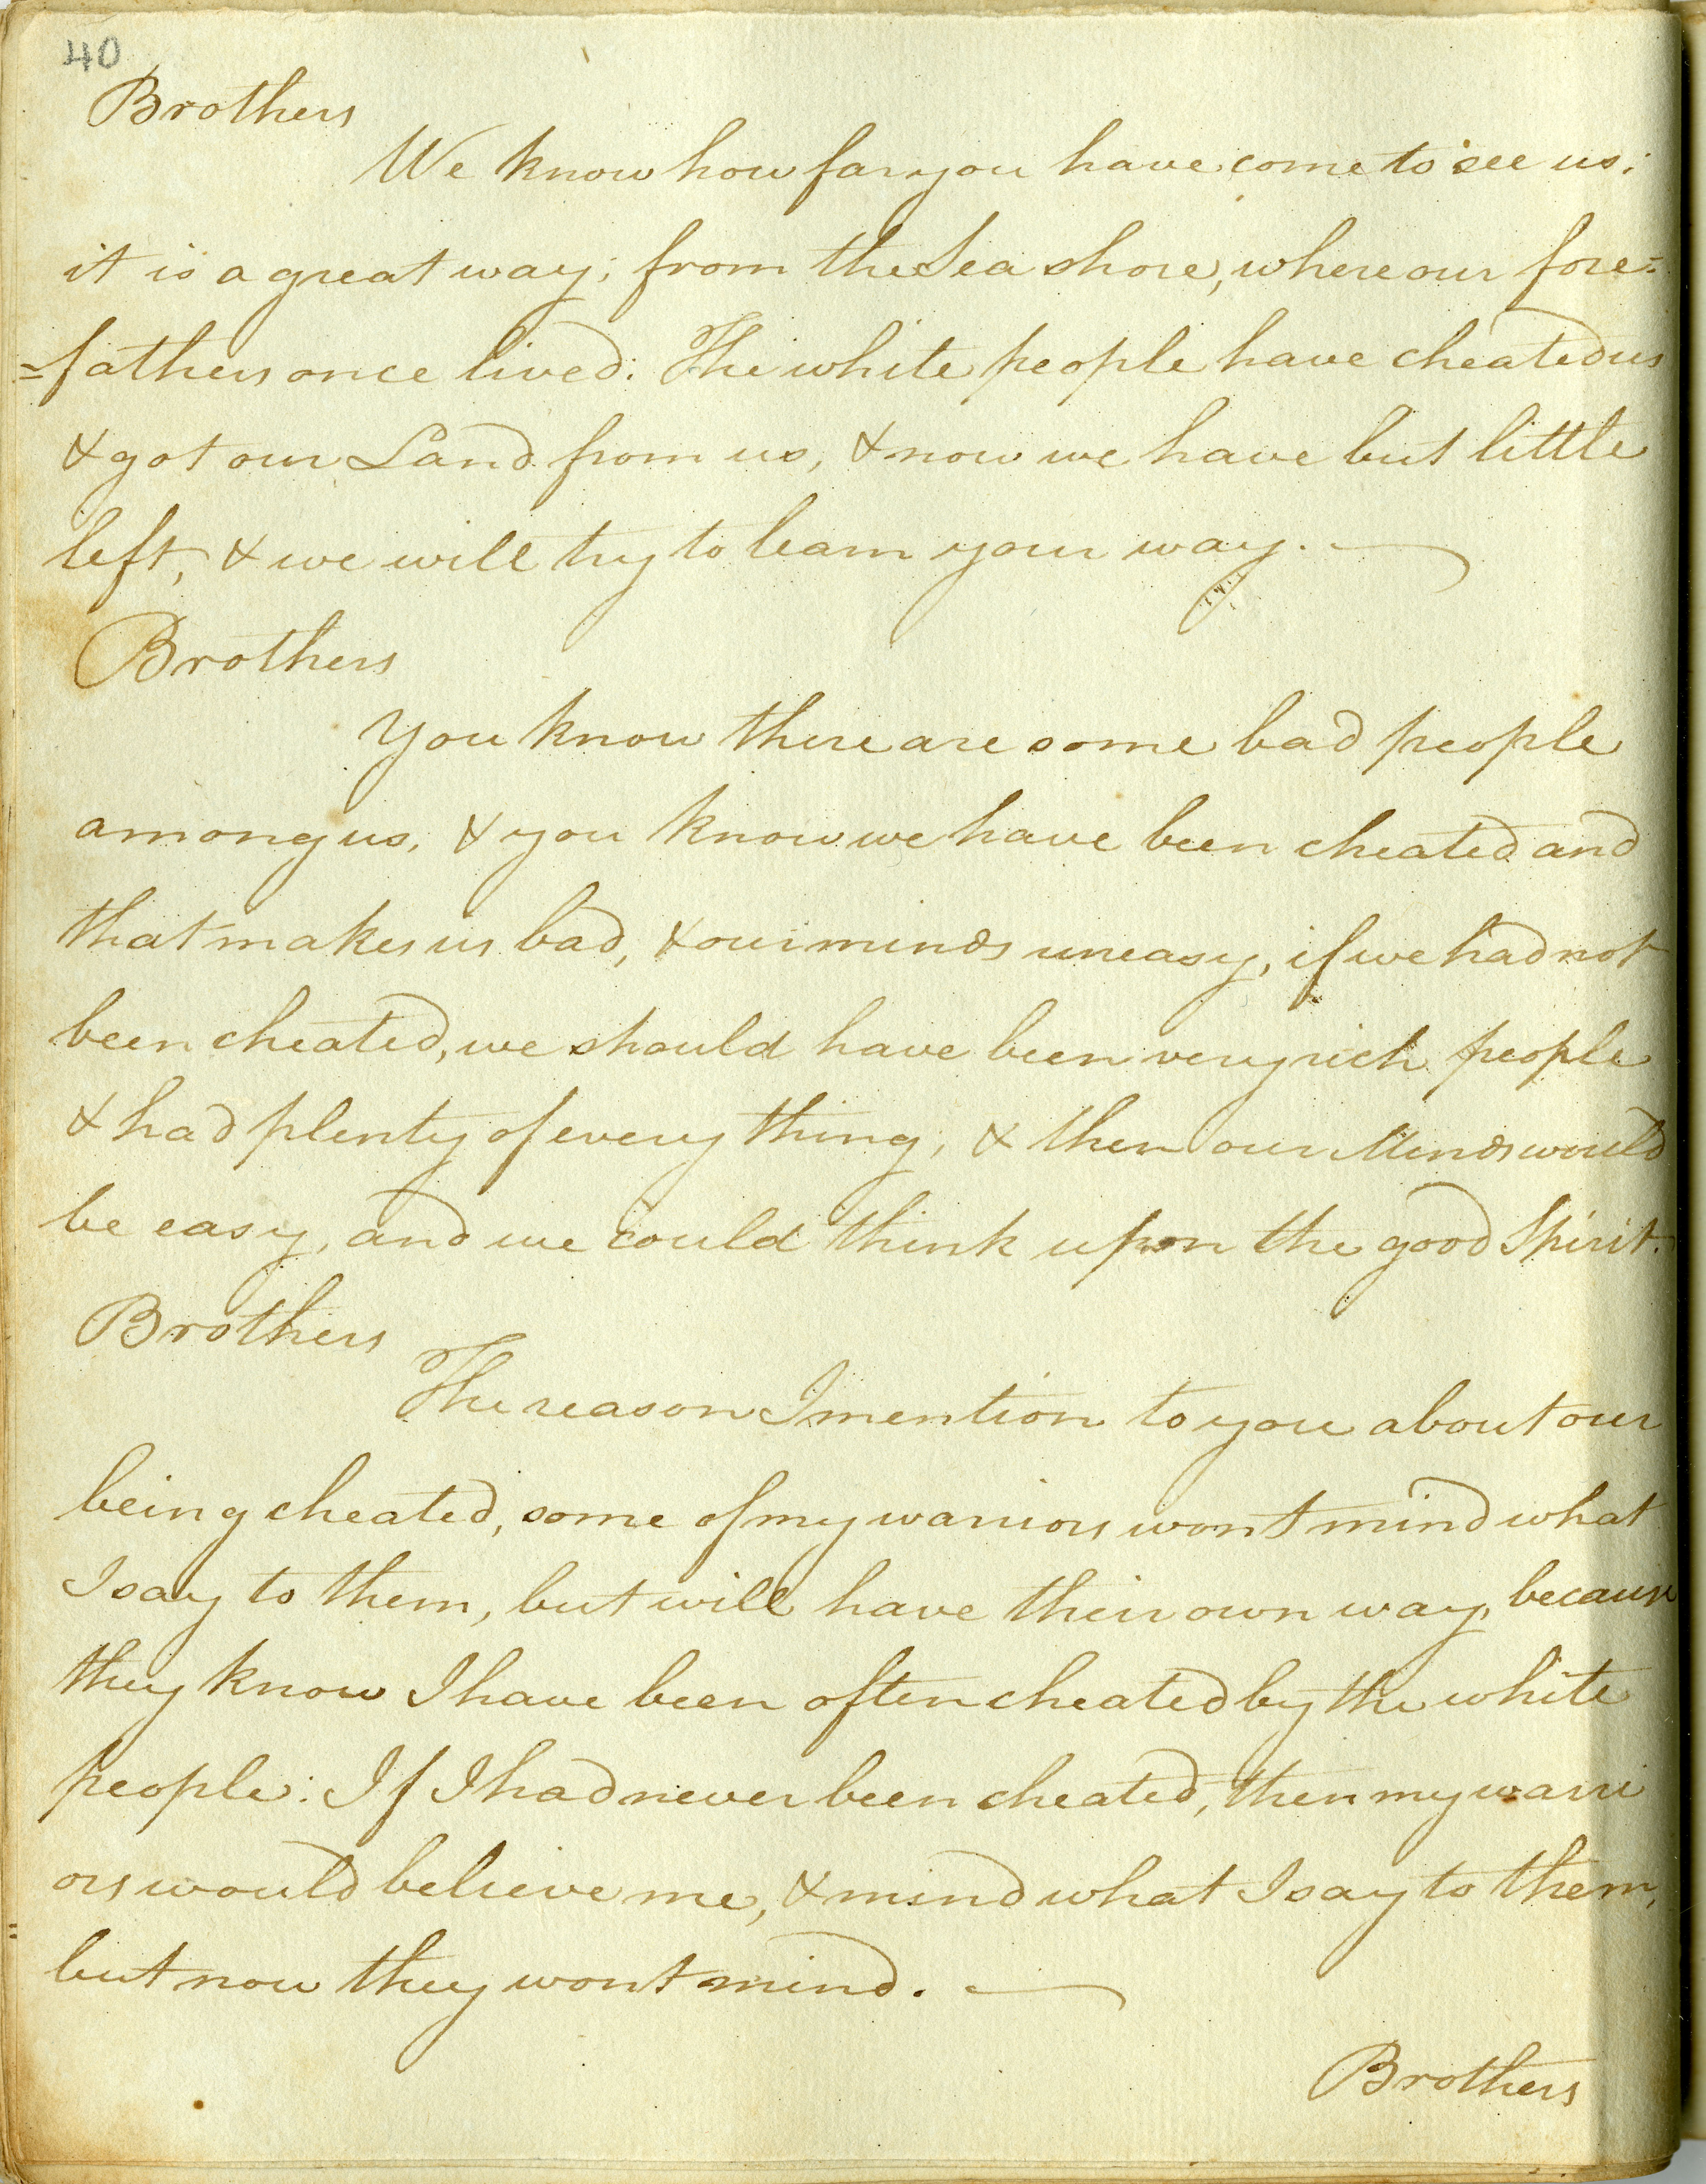 40
Brothers
We know how far you have come to see us;
it is a great way; from the Sea shore, where our fore=
=fathers once lived: The white people have cheated us
& got our Land from us, & now we have but little
left, & we will try to learn your way.
Brothers
You know there are some bad people
among us, & you know we have been cheated and
that makes us bad, & our minds uneasy, if we had not
been cheated, we should have been very rich people
& had plenty of every thing, & then our Minds would
be easy, and we could think upon the good Spirit.
Brothers
The reason I mention to you about our
being cheated, some of my warriors wont mind what
I say to them, but will have their own way, because
they know I have been often cheated by the white
people: If I had never been cheated, then my warri
ors would believe me, & mind what I say to them,
but now they wont mind.
Brothers